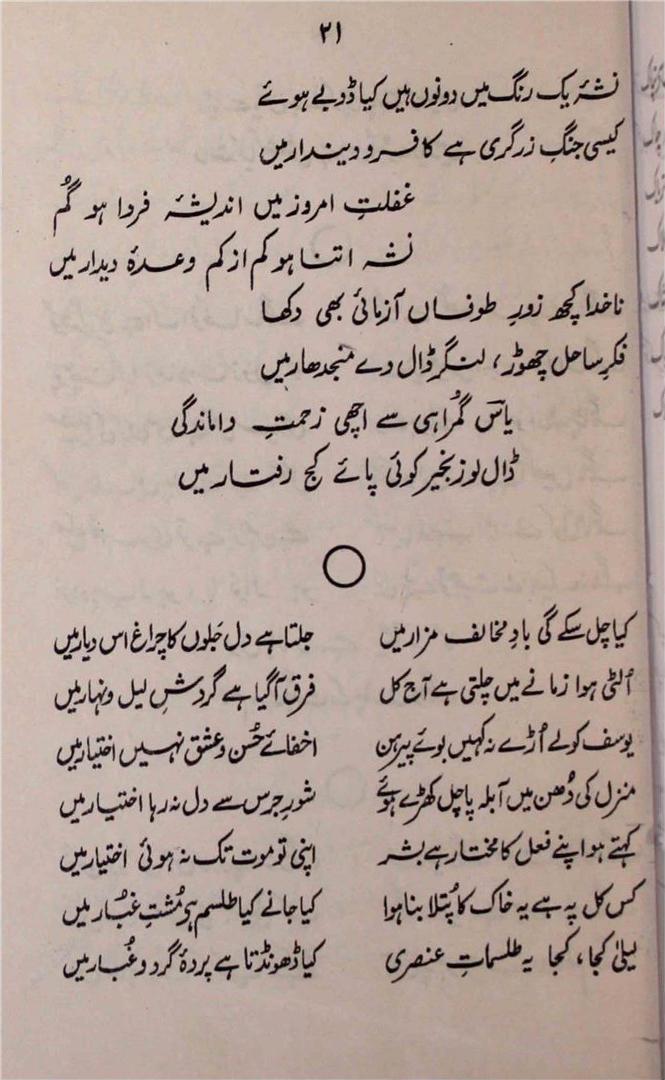 ۲۱
نشۂ یک رنگ میں دونوں ہیں کیا ڈوبے ہوئے
کیسی جنگِ زرگری ہے کافر و دیندار میں
غفلتِ امروز میں اندیشۂ فردا ہو گُم
نشہ اتنا ہو کم از کم وعدۂ دیدار میں
ناخدا کچھ زورِ طوفاں آزمائی بھی دکھا
فکرِ ساحل چھوڑ، لنگر ڈال دے منجدھار میں
یاسؔ گمُراہی سے اچھی زحمتِ واماندگی
ڈال لو زنجیر کوئی پائے کج رفتار میں
کیا چل سکے گی بادِ مخالف مزار میں جلتا ہے دل جَلوں کا چراغ اس دیار میں
اُلٹی ہوا زمانے میں چلتی ہے آج کل فرق آگیا ہے گردشِ لیل و نہار میں
یوسف کو لے اُڑے نہ کہیں بوئے پیرہن اخفائے حُسن و عشق نہیں اختیار میں
منزل کی دُھن میں آبلہ پا چل کھڑے ہوئے شورِ جرس سے دل نہ رہا اختیار میں
کہتے ہو اپنے فعل کا مختار ہے بشر اپنی تو موت تک نہ ہوئی اختیار میں
کس کل پہ ہے یہ خاک کا پُتلا بنا ہوا کیا جانے کیا طلسم ہی مُشتِ غبُار میں
لیلیٰ کجا، کجا یہ طلسماتِ عنصری کیا ڈھونڈتا ہے پردۂ گرد و غُبار میں